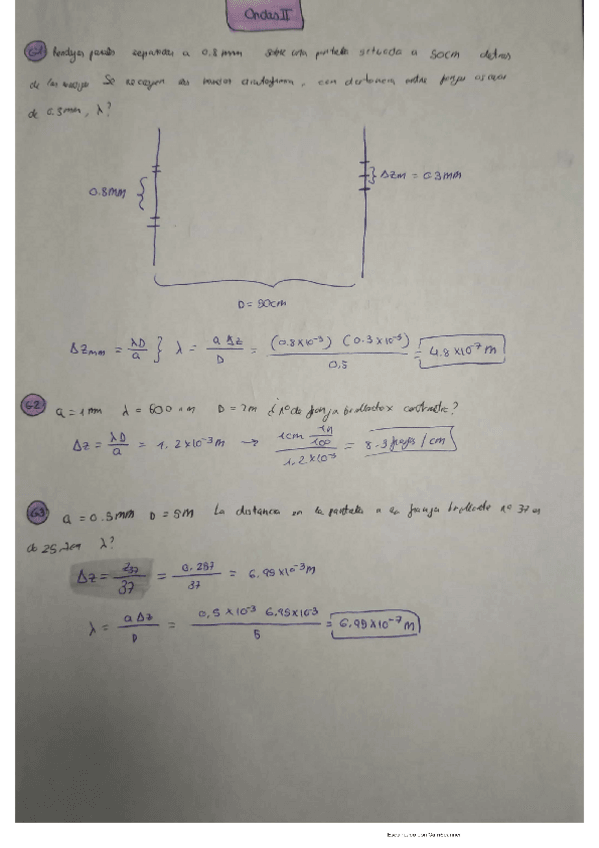 Ondas II
separadas a 0.8 mm sobre una pantalla situada a 50cm detras
de las Se recogen con distancia entre
de 0.3mm, λ?
0.8mm
Δzm = 0.3mm
D = 50cm
Δzmm = λD/a } λ = a Δz/D = (0.8×10⁻³) (0.3×10⁻³)/0,5 = 4.8×10⁻⁷ m
62 a = 1mm λ = 600 nm D = 2m ¿ nº de franja brillante x centimetro?
Δz = λD/a = 1.2×10⁻³ m → 1cm 1m/100 / 1.2×10⁻³ = 8.3 franjas/cm
63 a = 0.5mm D = 5m La distancia en la pantalla a la franja brillante nº 37 es
de λ?
Δz = z37/37 = 0.257/37 = 6.95×10⁻³ m
λ = a Δz/D = 0,5×10⁻³ 6.95×10⁻³/5 = 6.95×10⁻⁷ m